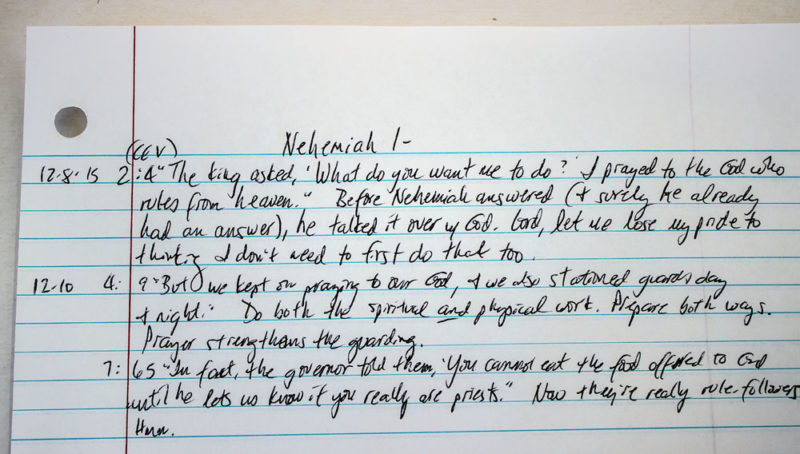 Nehemiah 1-
(CEV)
12-8-15 2:4 "The king asked, 'What do you want me to do?' I prayed to the God who
rules from heaven." Before Nehemiah answered (& surely he already
had an answer), he talked it over w/ God. Lord, let me lose my pride to
thinking I don't need to first do that too.
12-10 4:9 "But we kept on praying to our God, & we also stationed guards day
& night." Do both the spiritual and physical work. Prepare both ways.
Prayer strengthens the guarding.
7:65 "In fact, the governor told them, 'You cannot eat the food offered to God
until he lets us know if you really are priests." Now they're really rule-followers
Hmm.